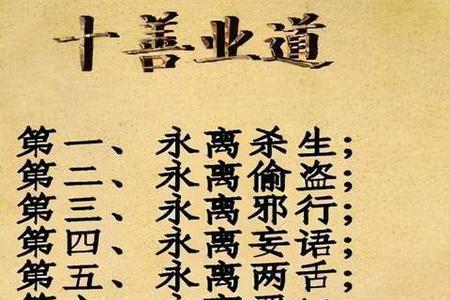 十善业道
第一、永离杀生;
第二、永离偷盗;
第三、永离邪行;
第四、永离妄语;
第五、永离两舌;